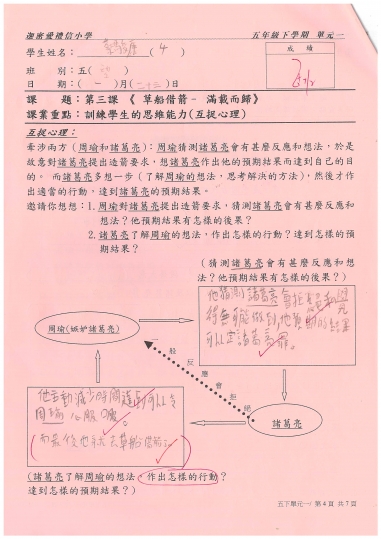 迦密愛禮信小學 五年級下學期 單元一
學生姓名： ( 4 ) 成績
班 別：五( )
日 期：( 一 )月( 二十三 )日
課 題：第三課 《 草船借箭 - 滿載而歸》
課業重點：訓練學生的思維能力(互抗心理)
互抗心理：
牽涉兩方（周瑜和諸葛亮）：周瑜猜測諸葛亮會有甚麼反應和想法，於是
故意對諸葛亮提出造箭要求，想諸葛亮作出他的預期結果而達到自己的目
的。 而諸葛亮多想一步（了解周瑜的想法，思考解決的方法)，然後才作
出適當的行動，達到諸葛亮的預期結果。
邀請你想想：1. 周瑜對諸葛亮提出造箭要求，猜測諸葛亮會有甚麼反應和
想法？他預期結果有怎樣的後果？
2. 諸葛亮了解周瑜的想法，作出怎樣的行動？達到怎樣的預期
結果？
（猜測諸葛亮會有甚麼反應和想
法？他預期結果有怎樣的後果？）
他猜測諸葛亮會拒
可以定諸葛亮罪。
周瑜(嫉妒諸葛亮)
一般反應會拒絕
他主動減少時間 可以令
周瑜心服口服。
諸葛亮
(諸葛亮了解周瑜的想法，作出怎樣的行動？
達到怎樣的預期結果？)
五下單元一/ 第 4 頁 共 7 頁